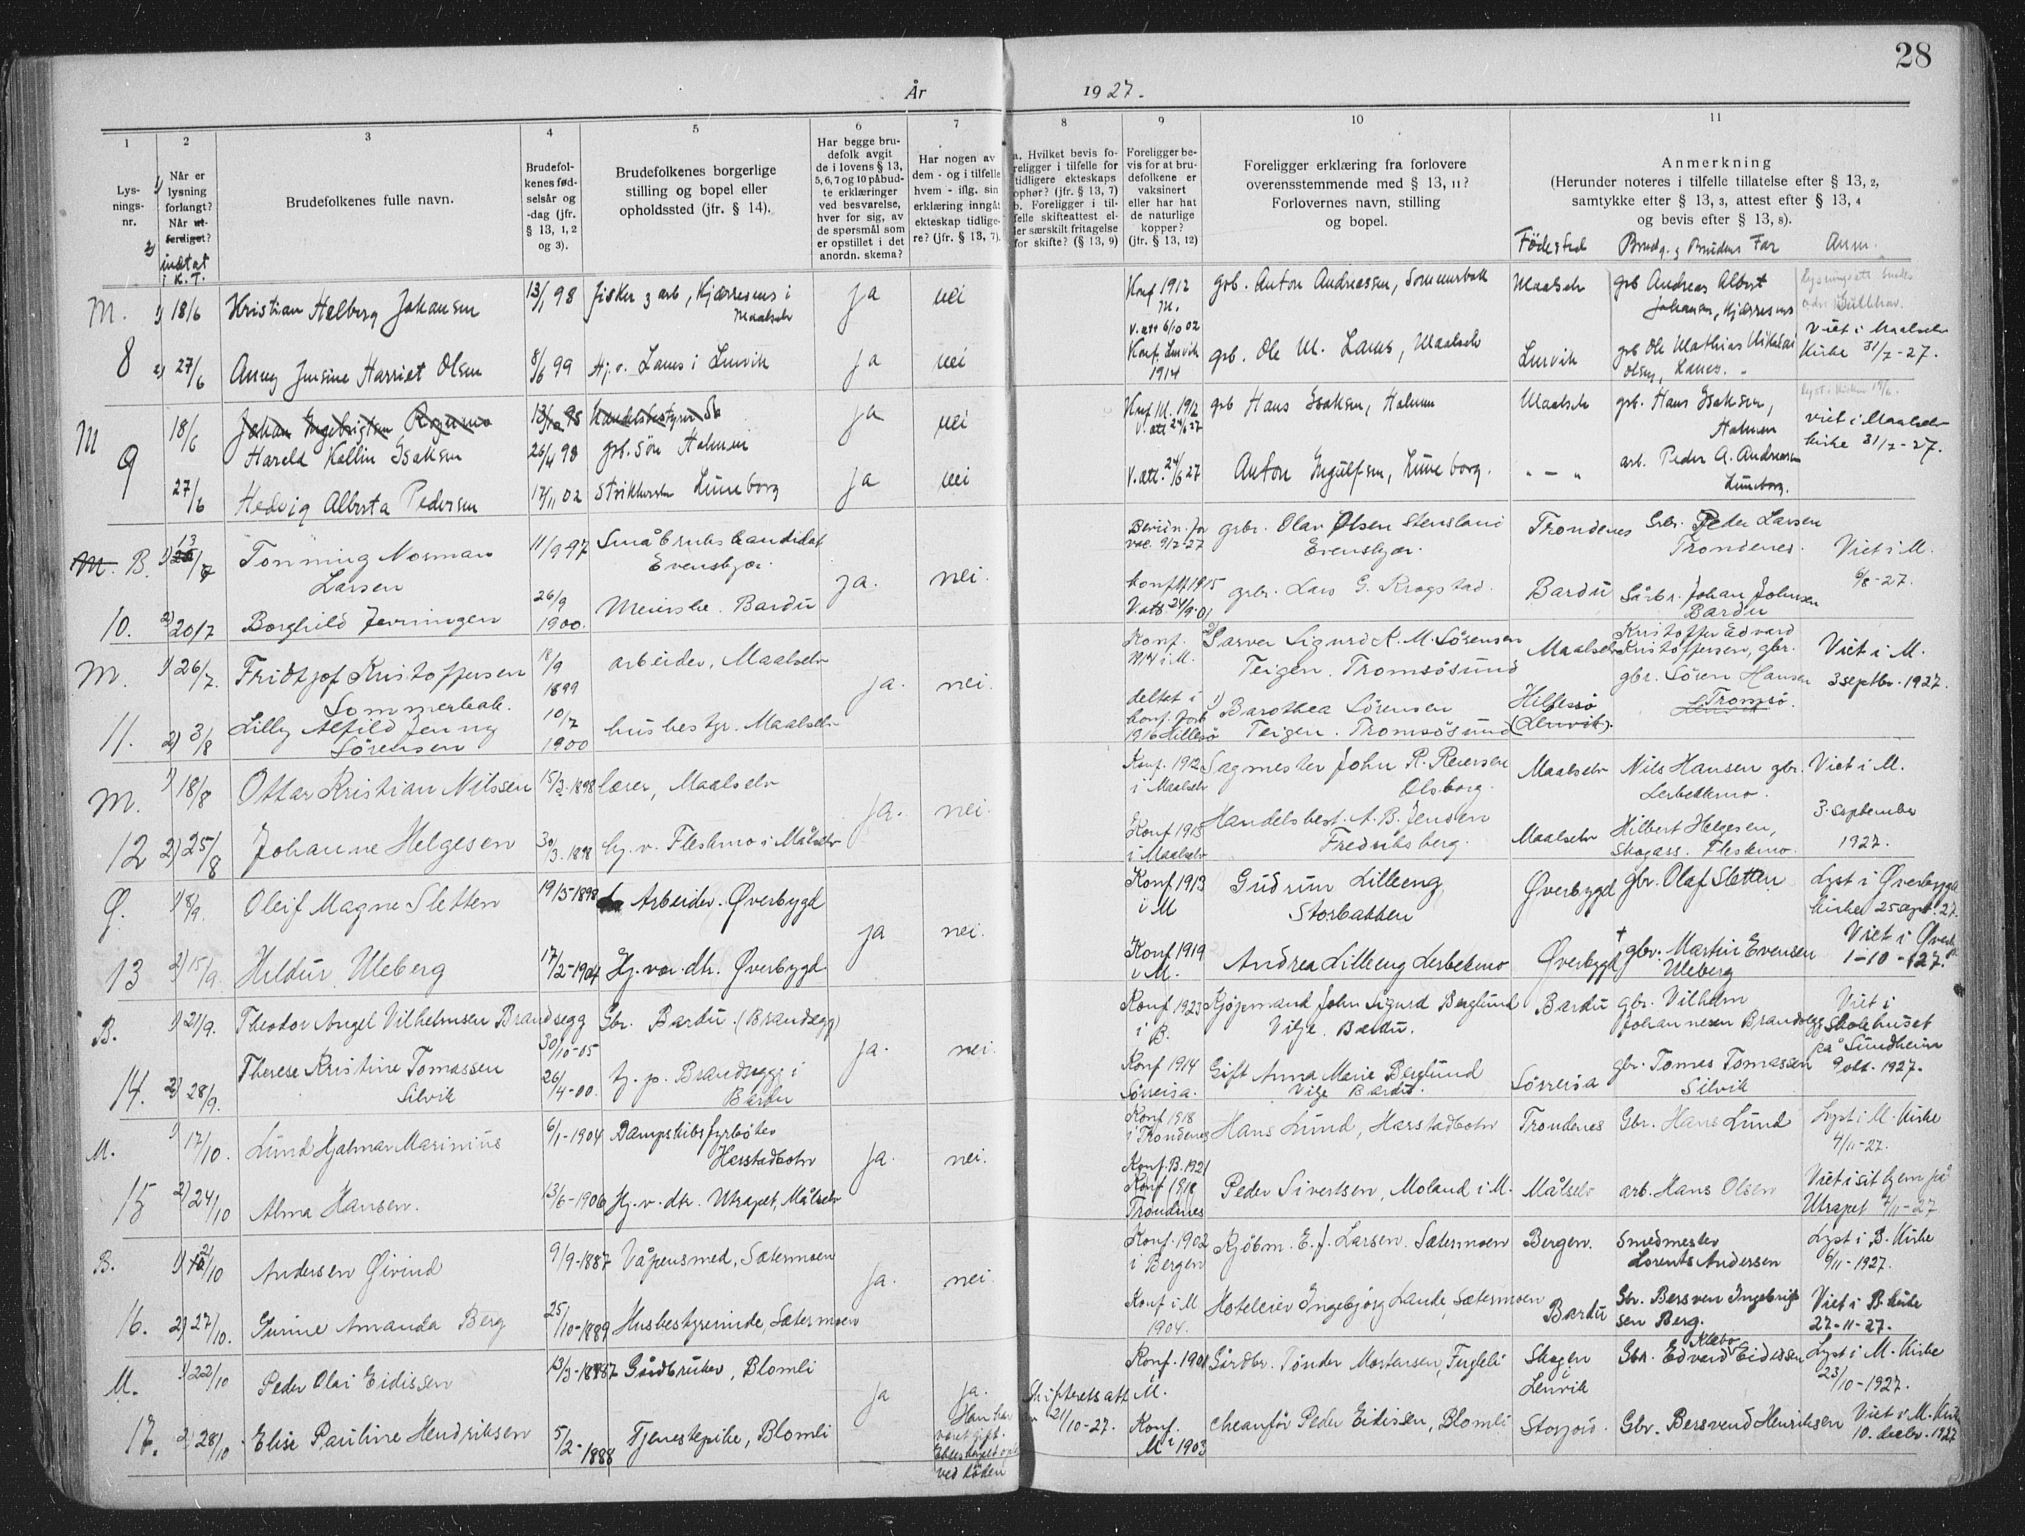 28
År 1927.
1
2
3
4
5
6
7
8
9
10
11
Lysnings-
nr.
1) Når er
lysning
forlangt?
Når ut-
ferdiget?
2) indtat
i K.T.
Brudefolkenes fulle navn.
Brudefol-
kenes fød-
selsår og
-dag (jfr.
§ 13, 1, 2
og 3).
Brudefolkenes borgerlige
stilling og bopel eller
opholdssted (jfr. § 14).
Har begge bru-
defolk avgit
de i lovens § 13,
5, 6, 7 og 10 påbud-
te erklæringer
ved besvarelse,
hver for sig, av
de spørsmål som
er opstillet i det
anordn. skema?
Har nogen av
dem - og i tilfelle
hvem - iflg. sin
erklæring inngåt
ekteskap tidlige-
re? (jfr. § 13, 7).
a. Hvilket bevis fo-
religger i tilfelle for
tidligere ekteskaps
ophør? (jfr. § 13, 7)
b. Foreligger i til-
felle skifteattest el-
ler særskilt fritagelse
for skifte? (§ 13, 9)
Foreligger be-
vis for at bru-
defolkene er
vaksinert
eller har hat
de naturlige
kopper?
(jfr. § 13, 12)
Foreligger erklæring fra forlovere
overensstemmende med § 13, 11?
Forlovernes navn, stilling
og bopel.
Anmerkning
(Herunder noteres i tilfelle tillatelse efter § 13, 2,
samtykke efter § 13, 3, attest efter § 13, 4
og bevis efter § 13, 8).
Fødested Brudg. og Brudens Far Anm.
M. 1) 18/6 Kristian Halberg Johansen 13/1 98 fisker og arb, Kjærresnes i Maalselv ja nei Konf. 1912 M. gbr. Anton Andreassen, Sommerbak Maalselv gbr Andreas Albert
Johansen, Kjærresnes
8 2) 27/6 Anny Jensine Harriet Olsen 8/6 99 Hj. v. Lanes i Lenvik ja nei V. att 6/10 02 Konf. Lenvik 1914 gbr. Ole M. Lanes, Maalselv Lenvik gbr Ole Mathias Nikolai
Olsen, Lanes. Viet i Maalselv
Kirke 31/7-27.
M 18/6 Johan Ingebrigtsen Rognmo 13/12 95 Handelsbestyrer ja nei Konf M. 1912 V. att 24/6 27 gbr Hans Isaksen, Holmen Maalselv gbr. Hans Isaksen,
Holmen Viet i Maalselv
Kirke 31/7-27.
9 Harald Kallin Isaksen 26/4 98 gbr. søn Holmen
27/6 Hedvig Alberta Pedersen 17/11 02 Strikkerske Luneborg ja nei V. att. 24/6 27 Anton Ingulfsen, Luneborg. " - " arb. Peder A. Andreasen
Luneborg.
M. B. 1) 13/7 Tønning Norman
Larsen 11/9 97 Småbrukskandidat
Evenskjær. ja. nei. Bevidn. for vac. 9/2-27 gbr. Olav Olsen Stensland
Evenskjær. Trondenes Gbr. Peder Larsen
Trondenes. Viet i M.
6/8-27.
10. 2) 20/7 Borghild Jenningen 26/9 1900. Meierske. Bardu Konf. 1915 V. att 24/9-01 gbr. Lars G. Krogstad. Bardu Gårbr. Johan Johnsen
Bardu
M. 1) 26/7. Fridtjof Kristoffersen
Sommerbak. 18/9 1899 arbeider, Maalselv ja. nei. Konf. 1914 i M. 2) Sarver Sigurd K. M. Sørensen
Teigen. Tromsøsund Maalselv Kristoffer Edvard
Kristoffersen, gbr. Viet i M.
3 septbr. 1927.
11. 2) 3/8 Lilly Alfild Jenny
Sørensen 10/7 1900 husbestyr. Maalselv deltat i konf. forb 1916 Hillesø 1) Barothea Sørensen
Teigen. Tromsøsund Hillesø
(Lenvik). gbr. Søren Hansen
Tromsø.
M. 1) 18/8 Ottar Kristian Nilssen 15/3-1898 lærer, Maalselv ja. nei. Konf. 1912 i Maalselv Sagmester John R. Reiersen
Olsborg. Maalselv Nils Hansen gbr.
Lerbekkmo. Viet i M.
3. september
1927.
12 2) 25/8 Johanne Helgesen 30/3. 1898 hj. v. Fleskmo i Målselv Konf 1913 i Maalselv Handelsbest. A. B. Jensen
Fredriksberg. Maalselv Hilbert Helgesen,
Skogass. Fleskmo.
Ø. 1) 8/9. Oleif Magne Sletten 19/5-1898 Arbeider. Øverbygd ja nei. Konf 1913 i M Gudrun Lilleeng
Storbakken Øverbygd gbr. Olaf Sletten Lyst i Øverbygd
kirke 25 sept. 27.
13 2) 15/9. Hildur Uleberg 17/2-1904 Hj. vær. dtr. Øverbygd Konf 1919 i M. Andrea Lilleeng Lerbekmo Øverbygd † gbr. Martin Evensen
Uleberg Viet i Øverb.
1-10-27.
B. 1) 21/9. Theodor Angel Vilhelmsen Brandsegg 30/10-05 Gbr. Bardu. (Brandsegg) ja. nei. Konf 1923 i B. Kjøpmand John Sigurd Berglund
Vilje. Bardu. Bardu gbr. Vilhelm
Johannesen Brandsegg Viet i
Skolehuset
på Sundheim
9 okt. 1927.
14. 2) 28/9. Therese Kristine Tomassen
Silvik 26/4-00. tj. p. Brandsegg i
Bardu Konf 1914 Sørreisa. Gift Anna Marie Berglund
Vilje Bardu. Sørreisa gbr. Tomes Tomassen
Silvik
M. 1) 17/10. Lund Hjalmar Marinius 6/1-1904 Dampskibsfyrbøter
Harstadbotn ja. nei. Konf 1918 i Trondenes Hans Lund, Harstadbotn Trondenes Gbr. Hans Lund Lyst i M. Kirke
4/11-27.
15 2) 24/10 Alma Hansen. 13/6-1906 Hj. v. dtr. Utrapet, Målselv Konf. B. 1921 Konf 1918 Trondenes Peder Sivertsen, Moland i M. Målselv arb. Hans Olsen Viet i sit hjem på
Utrapet
B. 1) 21/10 Andersen Øivind 9/9-1887 Våpensmed, Sætermoen ja. nei. Konf. 1902 i Bergen Kjøbm. E. J. Larsen. Sætermoen Bergen. Smedmester
Lorents Andersen Lyst i B. Kirke
6/11-1927.
16. 2) 27/10. Gurine Amanda Berg 25/10-1889 Husbestyrerinde, Sætermoen Konf i M 1904. Hoteleier Ingebjørg Lande, Sætermoen Bardu Gbr. Bersven Ingebrigt
sen Berg. Viet i B. kirke
27-11-27.
M. 1) 22/10 Peder Olai Eidissen 13/3-1887 Gårdbruker, Blomli ja ja. Skifteretsatt
av 21/10-27. Konf. 1901 M. Gårdbr. Tønder Mortensen, Fagerli Skogen
i
Lenvik Gbr. Edvard Klæbo Eidissen Lyst i M. Kirke
23/10-1927.
17. 2) 28/10 Elise Pauline Hendriksen 5/2-1888 Tjenestepike, Blomli Han har
været gift.
Ekteskapet opl.
ved døden Konf. M 1903 Peder Eidissen, Blomli Storjord. Gbr. Bersvend Henriksen Viet i M. Kirke
10. decbr. 1927